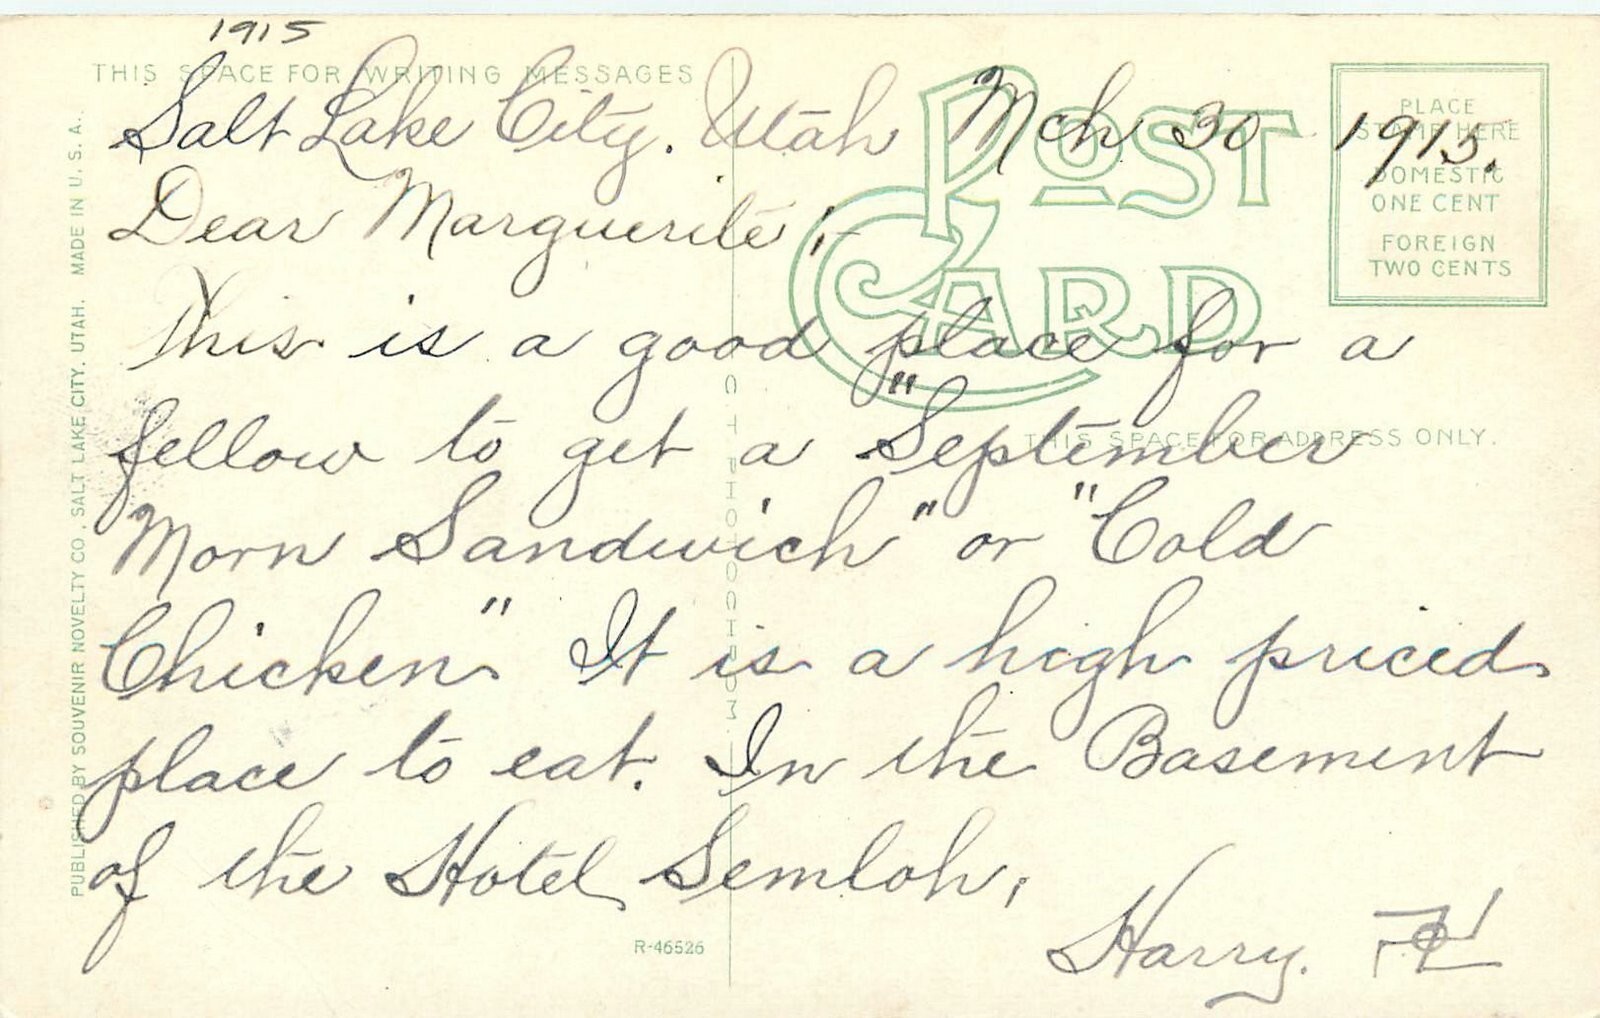 1915
THIS SPACE FOR WRITING MESSAGES
Salt Lake City. Utah Mch 30 1915.
Dear Marguerite;-
This is a good place for a
fellow to get a "September
Morn Sandwich" or "Cold
Chicken" It is a high priced
place to eat. In the Basement
of the Hotel Semloh.
Harry.
POST CARD
PLACE
STAMP HERE
DOMESTIC
ONE CENT
FOREIGN
TWO CENTS
THIS SPACE FOR ADDRESS ONLY.
PUBLISHED BY SOUVENIR NOVELTY CO., SALT LAKE CITY, UTAH. MADE IN U. S. A.
C. T. PHOTOCHROM.
R-46526